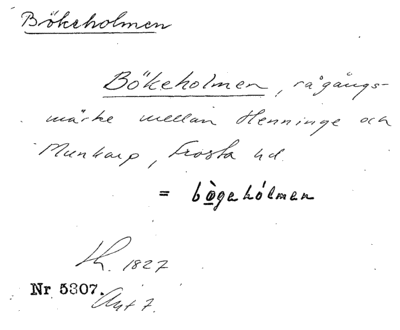 Bökeholmen
Bökeholmen, rågångs-
märke mellan Henninge och
Munkarp, Frosta hd
= bògehólmen
1827
Nr 5307.
Akt 7.